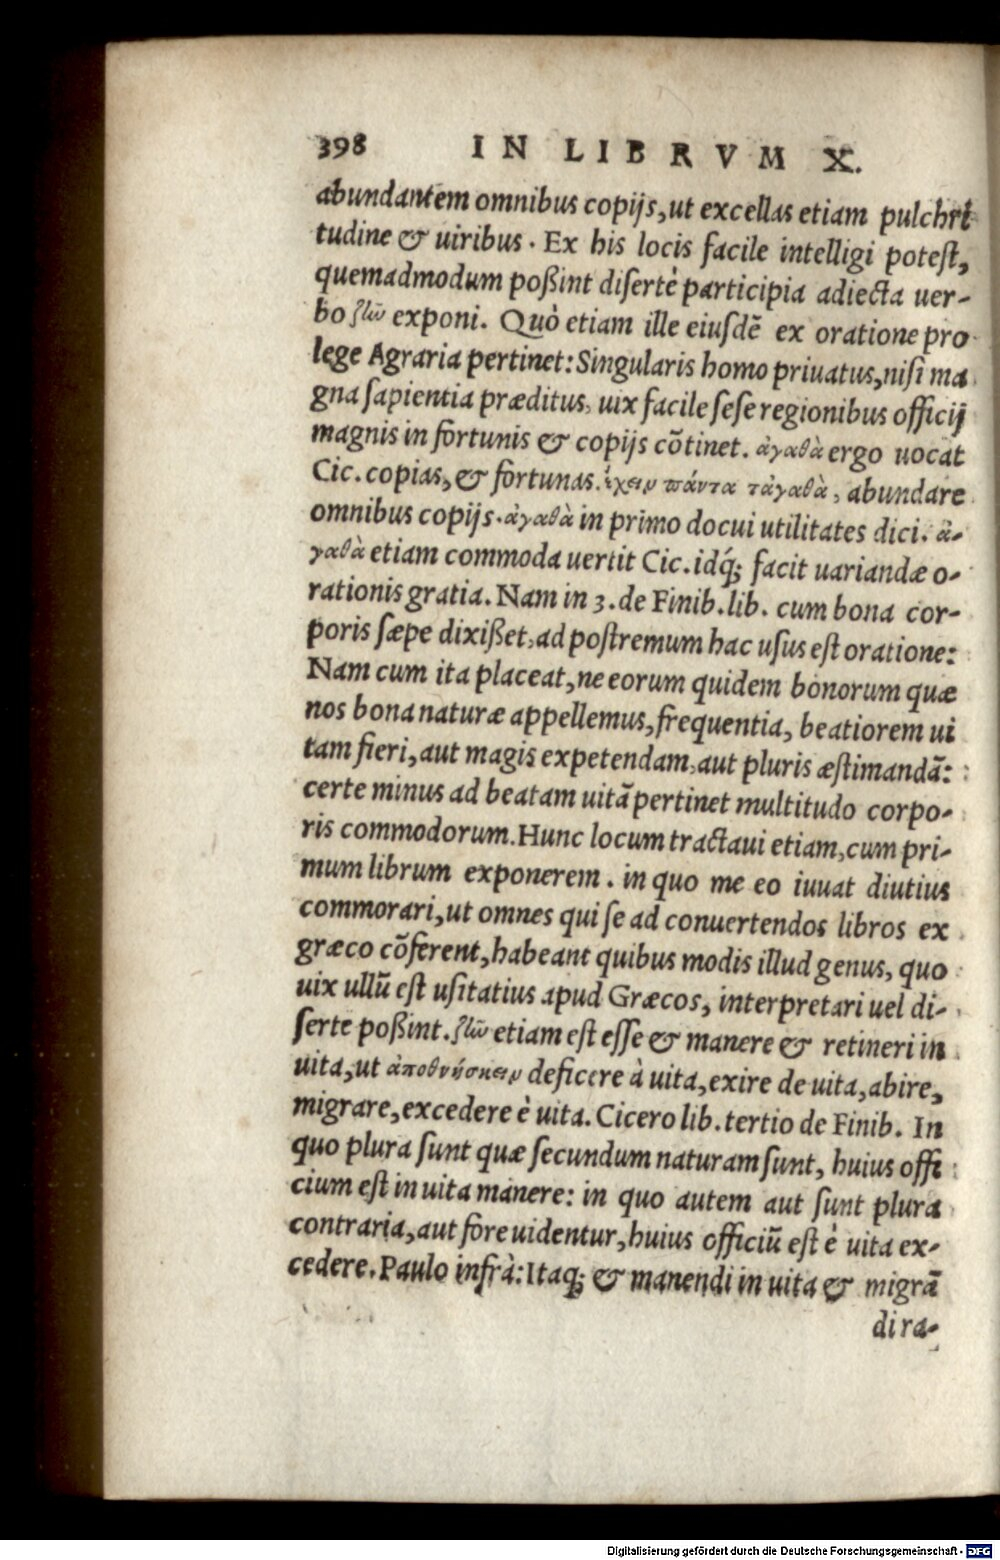 398 IN LIBRVM X.
abundantem omnibus copijs, ut excellas etiam pulchri
tudine & uiribus. Ex his locis facile intelligi potest,
quemadmodum poßint disertè participia adiecta uer-
bo ζῆν exponi. Quò etiam ille eiusdē ex oratione pro
lege Agraria pertinet: Singularis homo priuatus, nisi ma
gna sapientia præditus, uix facile sese regionibus officij
magnis in fortunis & copijs cōtinet. ἀγαθὰ ergo uocat
Cic. copias, & fortunas. ἔχειν πάντα τἀγαθὰ, abundare
omnibus copijs. ἀγαθὰ in primo docui utilitates dici. ἀ-
γαθὰ etiam commoda uertit Cic. idq́; facit uariandæ o-
rationis gratia. Nam in 3. de Finib. lib. cum bona cor-
poris sæpe dixißet, ad postremum hac usus est oratione:
Nam cum ita placeat, ne eorum quidem bonorum quæ
nos bona naturæ appellemus, frequentia, beatiorem ui
tam fieri, aut magis expetendam, aut pluris æstimandā:
certe minus ad beatam uitā pertinet multitudo corpo-
ris commodorum. Hunc locum tractaui etiam, cum pri-
mum librum exponerem. in quo me eo iuuat diutius
commorari, ut omnes qui se ad conuertendos libros ex
græco cōferent, habeant quibus modis illud genus, quo
uix ullū est usitatius apud Græcos, interpretari uel di-
serte poßint. ζῆν etiam est esse & manere & retineri in
uita, ut ἀποθνήσκειν deficere à uita, exire de uita, abire,
migrare, excedere è uita. Cicero lib. tertio de Finib. In
quo plura sunt quæ secundum naturam sunt, huius offi
cium est in uita manere: in quo autem aut sunt plura
contraria, aut fore uidentur, huius officiū est è uita ex-
cedere. Paulo infrà: Itaq; & manendi in uita & migrā
di ra-
Digitalisierung gefördert durch die Deutsche Forschungsgemeinschaft - DFG